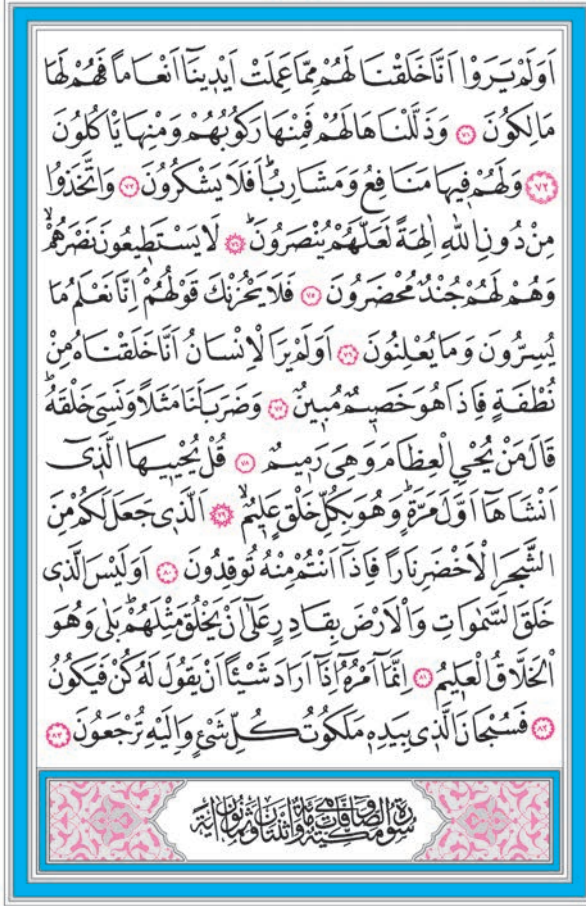 اَوَلَمْ يَرَوْا اَنَّا خَلَقْنَا لَهُمْ مِمَّا عَمِلَتْ اَيْدٖينَٓا اَنْعَاماً فَهُمْ لَهَا
مَالِكُونَ ﴿٧١﴾ وَذَلَّلْنَاهَا لَهُمْ فَمِنْهَا رَكُوبُهُمْ وَمِنْهَا يَأْكُلُونَ
﴿٧٢﴾ وَلَهُمْ فٖيهَا مَنَافِعُ وَمَشَارِبُؕ اَفَلَا يَشْكُرُونَ ﴿٧٣﴾ وَاتَّخَذُوا
مِنْ دُونِ اللّٰهِ اٰلِهَةً لَعَلَّهُمْ يُنْصَرُونَؕ ﴿٧٤﴾ لَا يَسْتَطٖيعُونَ نَصْرَهُمْۙ
وَهُمْ لَهُمْ جُنْدٌ مُحْضَرُونَ ﴿٧٥﴾ فَلَا يَحْزُنْكَ قَوْلُهُمْۘ اِنَّا نَعْلَمُ مَا
يُسِرُّونَ وَمَا يُعْلِنُونَ ﴿٧٦﴾ اَوَلَمْ يَرَ الْاِنْسَانُ اَنَّا خَلَقْنَاهُ مِنْ
نُطْفَةٍ فَاِذَا هُوَ خَصٖيمٌ مُبٖينٌ ﴿٧٧﴾ وَضَرَبَ لَنَا مَثَلاً وَنَسِيَ خَلْقَهُؕ
قَالَ مَنْ يُحْيِ الْعِظَامَ وَهِيَ رَمٖيمٌ ﴿٧٨﴾ قُلْ يُحْيٖيهَا الَّذٖٓي
اَنْشَاَهَٓا اَوَّلَ مَرَّةٍؕ وَهُوَ بِكُلِّ خَلْقٍ عَلٖيمٌۙ ﴿٧٩﴾ اَلَّذٖي جَعَلَ لَكُمْ مِنَ
الشَّجَرِ الْاَخْضَرِ نَاراً فَاِذَٓا اَنْتُمْ مِنْهُ تُوقِدُونَ ﴿٨٠﴾ اَوَلَيْسَ الَّذٖي
خَلَقَ السَّمٰوَاتِ وَالْاَرْضَ بِقَادِرٍ عَلٰٓى اَنْ يَخْلُقَ مِثْلَهُمْؕ بَلٰى وَهُوَ
الْخَلَّاقُ الْعَلٖيمُ ﴿٨١﴾ اِنَّمَٓا اَمْرُهُٓ اِذَٓا اَرَادَ شَيْـٔاً اَنْ يَقُولَ لَهُ كُنْ فَيَكُونُ
﴿٨٢﴾ فَسُبْحَانَ الَّذٖي بِيَدِهٖ مَلَكُوتُ كُلِّ شَيْءٍ وَاِلَيْهِ تُرْجَعُونَ ﴿٨٣﴾
سُورَةُ الصَّافَّاتِ مَكِّيَّةٌ وَهِيَ مِائَةٌ وَاثْنَتَانِ وَثَمَانُونَ اٰيَةً